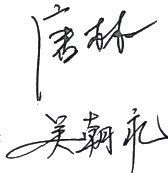 唐林
吴朝礼